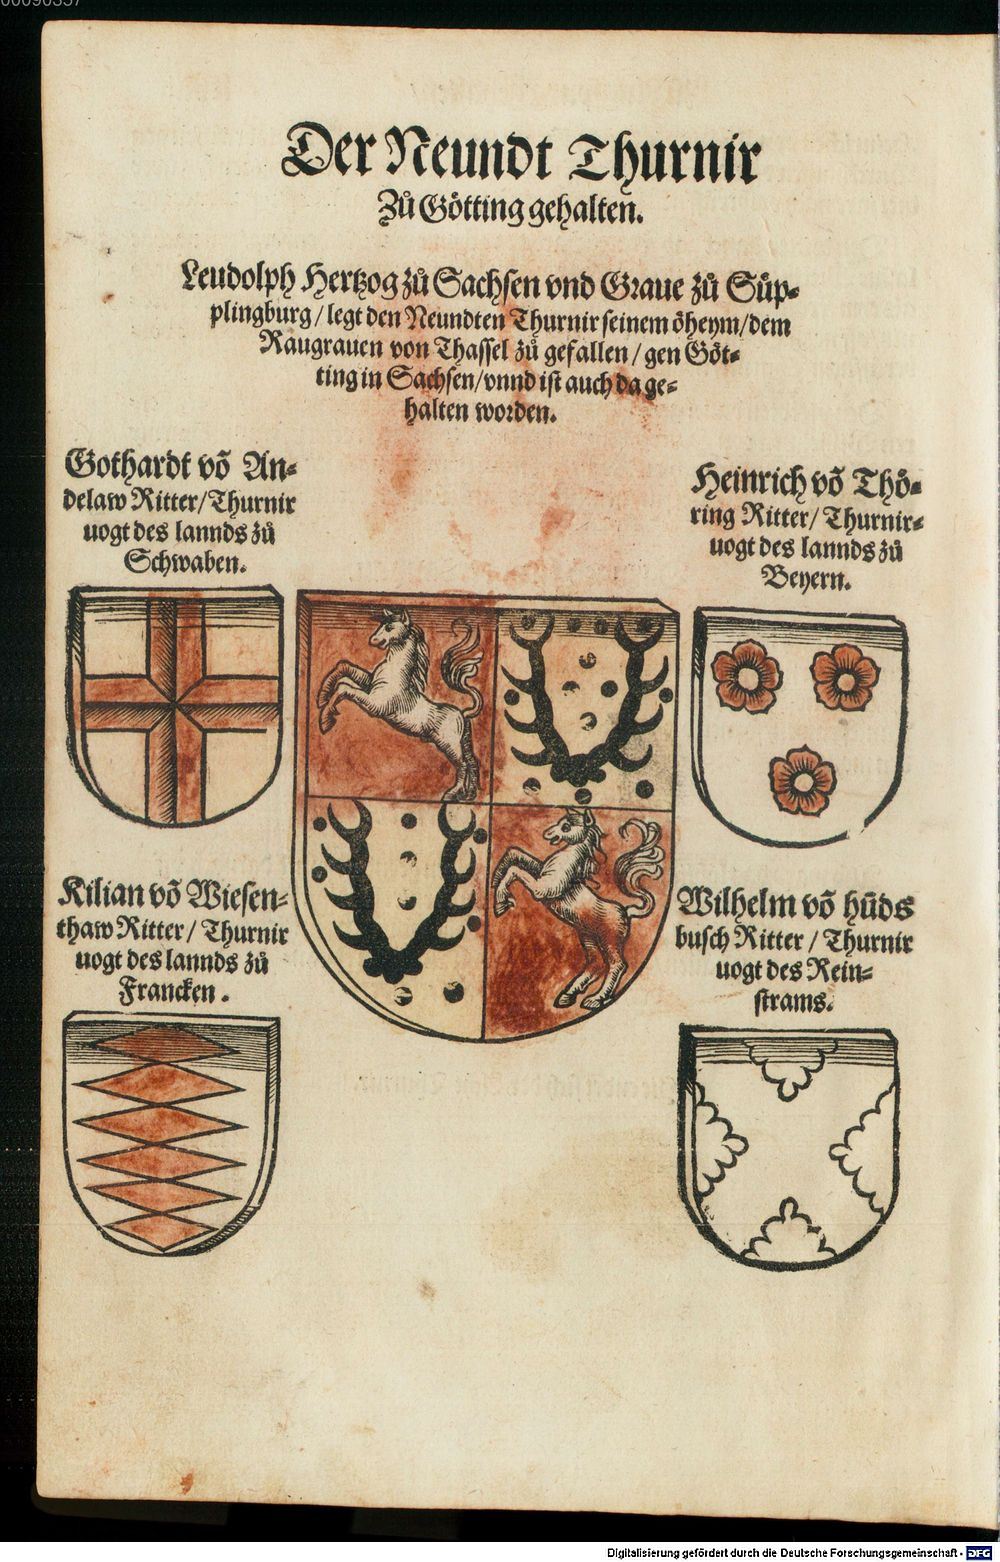 00090337
Der Neundt Thurnir
Zů Götting gehalten.
Leudolph Hertzog zů Sachsen vnd Graue zů Süp⸗
plingburg / legt den Neundten Thurnir seinem öheym / dem
Raugrauen von Thassel zů gefallen / gen Göt⸗
ting in Sachsen / vnnd ist auch da ge⸗
halten worden.
Gothardt võ An⸗
delaw Ritter / Thurnir
uogt des lannds zů
Schwaben.
Heinrich võ Thö⸗
ring Ritter / Thurnir⸗
uogt des lannds zů
Beyern.
Kilian võ Wiesen⸗
thaw Ritter / Thurnir
uogt des lannds zů
Francken.
Wilhelm võ hũds
busch Ritter / Thurnir
uogt des Rein⸗
strams.
Digitalisierung gefördert durch die Deutsche Forschungsgemeinschaft - DFG